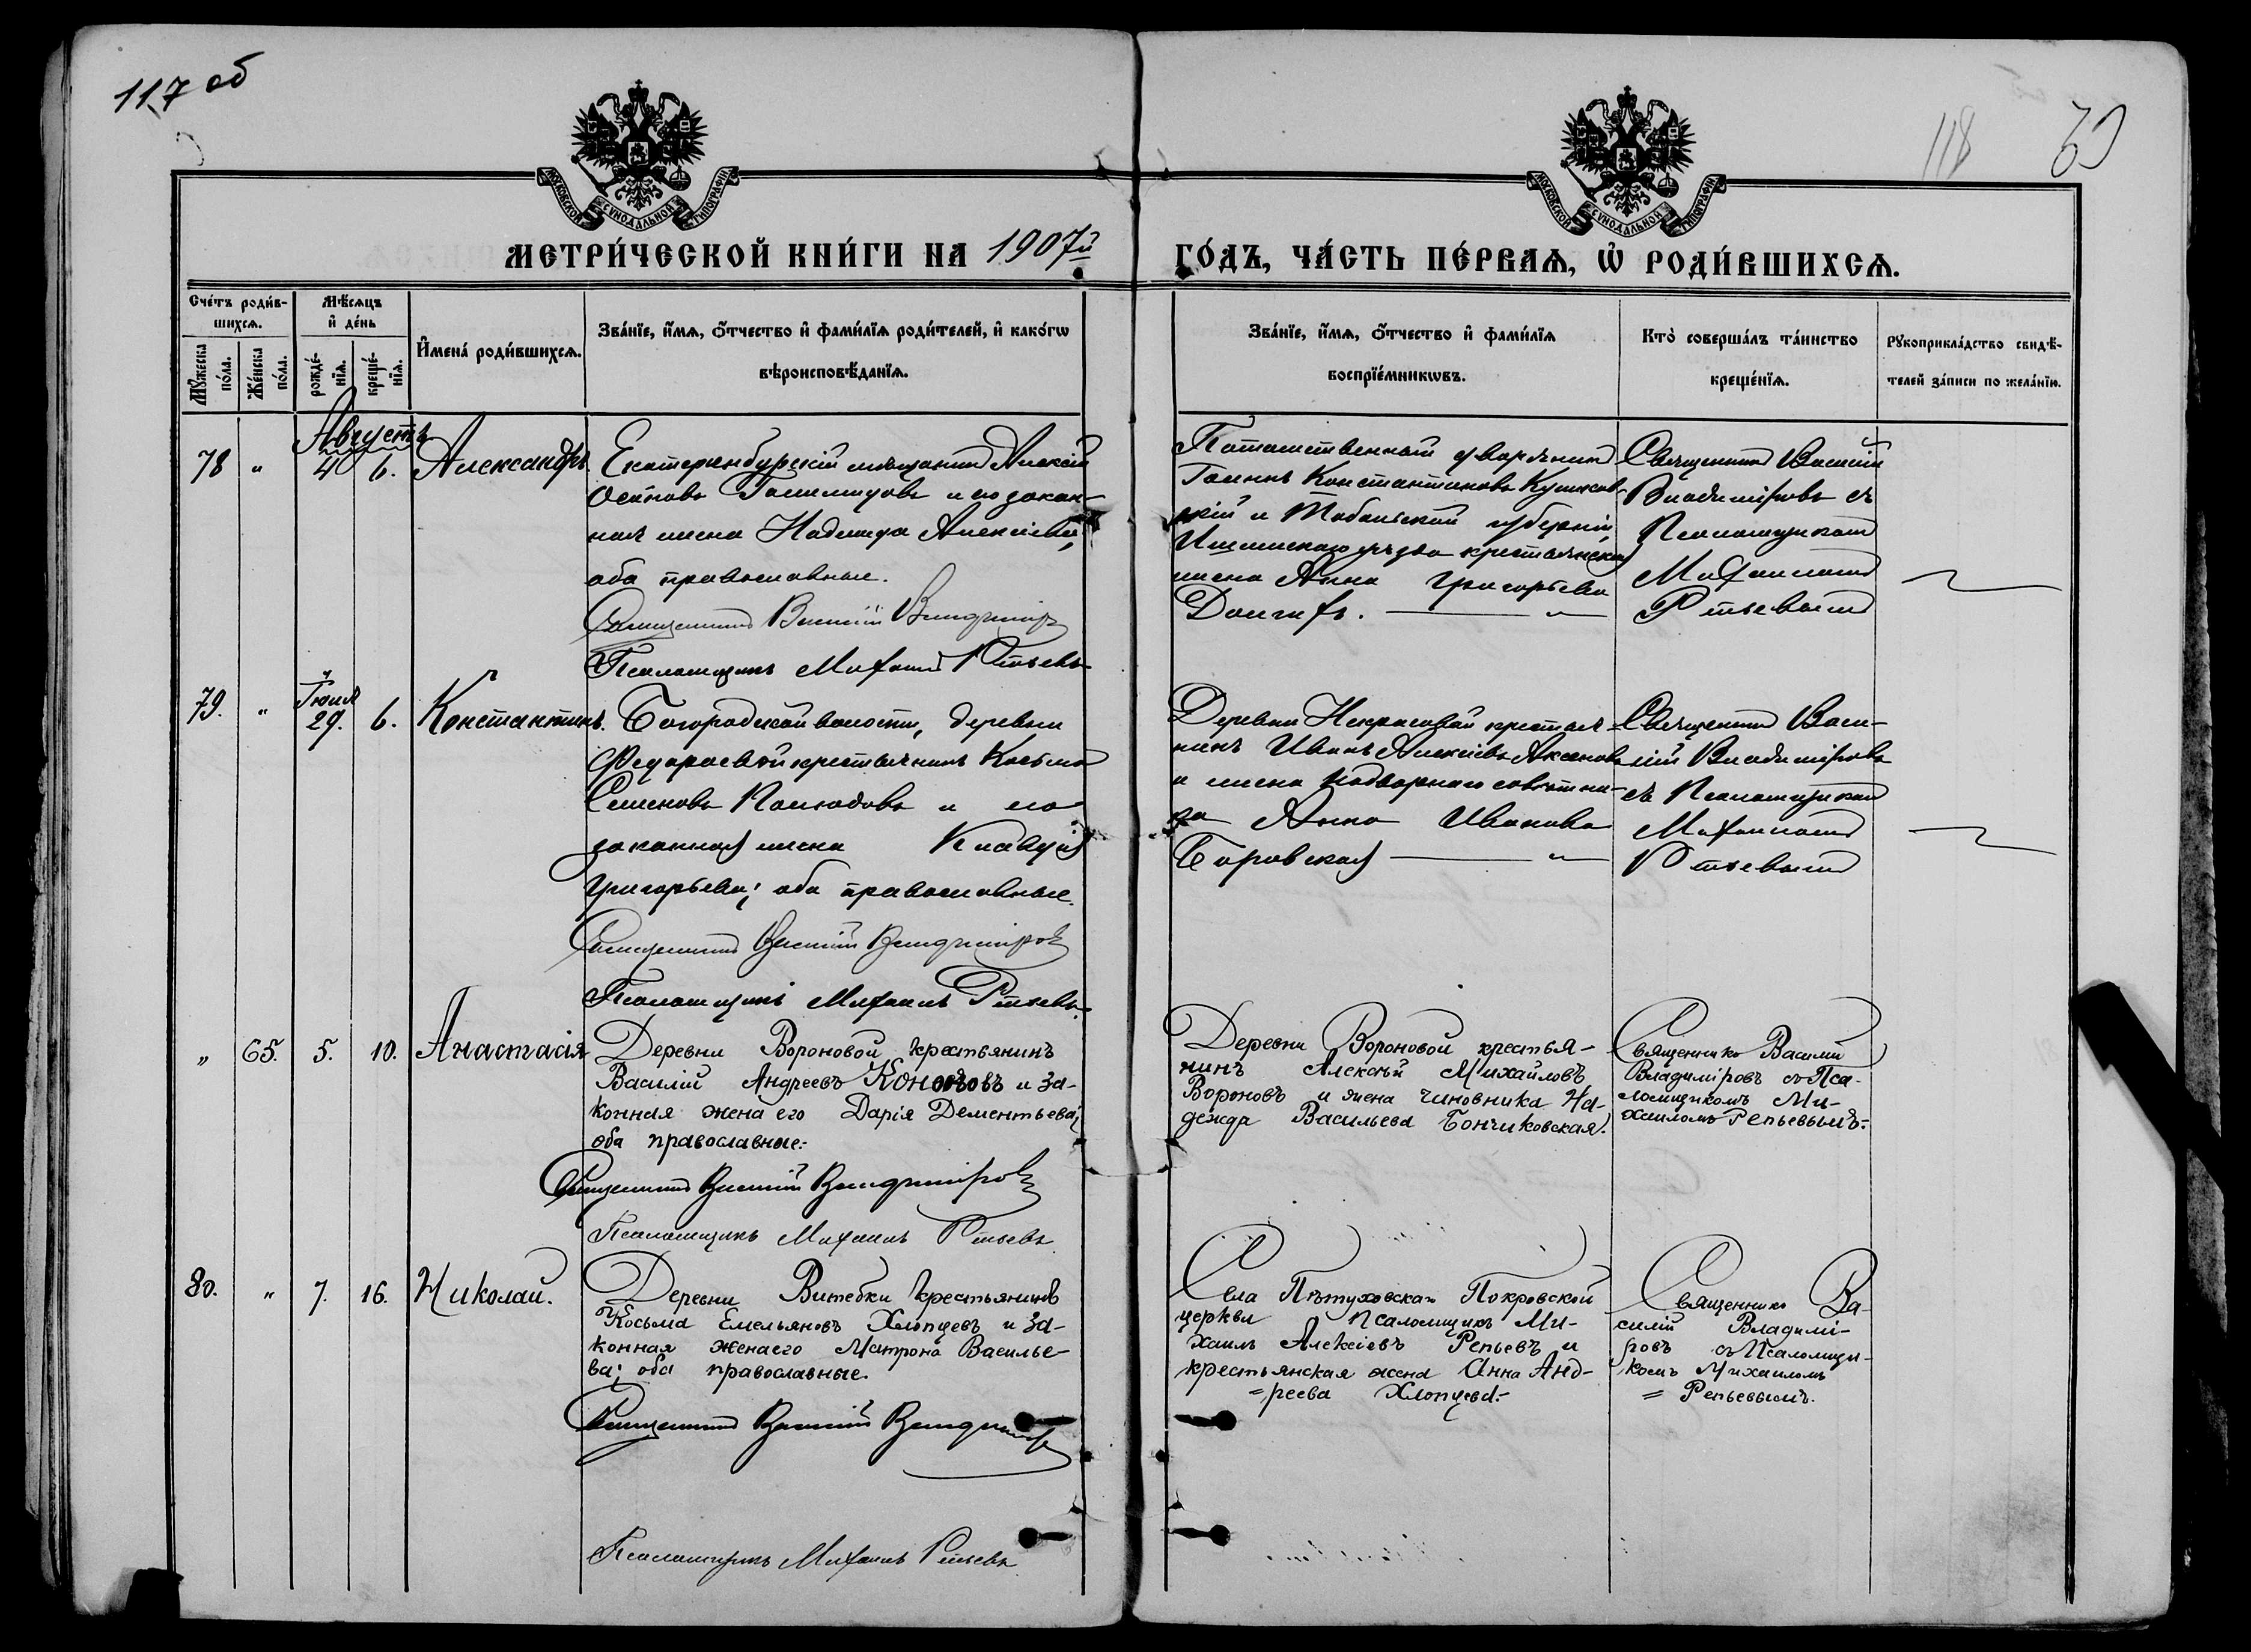 117 об
118
МОСКОВСКОЙ СУНОДАЛЬНОЙ ТИПОГРАФІИ
МОСКОВСКОЙ СУНОДАЛЬНОЙ ТИПОГРАФІИ
МЕТРИ́ЧЕСКОЙ КНИ́ГИ НА 1907й ГО́ДЪ, ЧА́СТЬ ПЕ́РВАѦ, Ѽ РОДИ́ВШИХСѦ.
Сче́тъ роди́в-
шихсѧ.
Мꙋ́жеска по́ла.
Же́нска по́ла.
Мѣ́сѧцъ
и҆ де́нь
рожде́-
нїѧ.
креще́-
нїѧ.
И҆мена̀ роди́вшихсѧ.
Зва́нїе, и҆́мѧ, ѻ҆́тчество и҆ фами́лїѧ роди́телей, и҆ како́гѡ
вѣроисповѣ́данїѧ.
Зва́нїе, и҆́мѧ, ѻ҆́тчество и҆ фами́лїѧ
воспрїе́мникѡвъ.
Кто̀ соверша́лъ та́инство
креще́нїѧ.
Рꙋкоприкла́дство свидѣ́-
телей за́писи по жела́нїю.
Августъ
78 " 4 6. Александръ.
Екатеринбургскій мѣщанинъ Алексѣй
Осиповъ и его закон-
ная жена Надежда Алексѣева,
оба православные.
Священникъ Василій Владиміровъ
Псаломщикъ Михаилъ Репьевъ
Потомственный дворянинъ
Іоаннъ Константиновъ
и Тобольской губерніи,
Ишимскаго уѣзда крестьянская
жена Анна Григорьева
Священникъ Василій
Владиміровъ съ
Псаломщикомъ
Михаиломъ
Репьевымъ
79. " Іюля 29. 6. Константинъ.
Богородской волости, деревни
крестьянинъ Косьма
Семеновъ и его
законная жена Клавдія
Григорьева; оба православные.
Священникъ Василій Владиміровъ
Псаломщикъ Михаилъ Репьевъ.
Деревни Некрасовой крестья-
нинъ Иванъ Алексѣевъ Аксеновъ
и жена надворнаго совѣтни-
ка Анна Иванова
Боровская
Священникъ Васи-
лій Владиміровъ
съ Псаломщикомъ
Михаиломъ
Репьевымъ
" 65. 5. 10. Анастасія
Деревни Вороновой крестьянинъ
Василій Андреевъ Кононовъ и за-
конная жена его Дарія Дементьева;
оба православные.
Священникъ Василій Владиміровъ
Псаломщикъ Михаилъ Репьевъ
Деревни Вороновой крестья-
нинъ Алексѣй Михайловъ
Вороновъ и жена чиновника На-
дежда Васильева Бончиковская.
Священникъ Василій
Владиміровъ съ Пса-
ломщикомъ Ми-
хаиломъ Репьевымъ.
80. " 7. 16. Николай.
Деревни Витебки крестьянинъ
Косьма Емельяновъ Хлопцевъ и за-
конная жена его Матрона Василье-
ва; оба православные.
Священникъ Василій Владиміровъ
Псаломщикъ Михаилъ Репьевъ
Села Пѣтуховскаго Покровской
церкви Псаломщикъ Ми-
хаилъ Алексіевъ Репьевъ и
крестьянская жена Анна Анд-
=реева Хлопцева.
Священникъ Ва-
силій Владимі-
ровъ съ Псаломщи-
комъ Михаиломъ
= Репьевымъ.